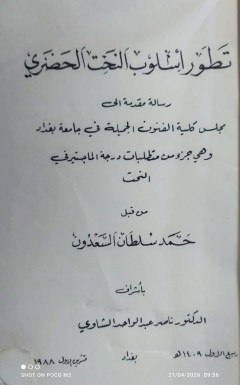 تطور اسلوب النحت الحضري
رسالة مقدمة الى
مجلس كلية الفنون الجميلة في جامعة بغداد
وهي جزء من متطلبات درجة الماجستير في
النحت
من قبل
حمد سلطان السعدون
بأشراف
الدكتور ناصر عبد الواحد الشاوي
ربيع الاول ١٤٠٩هـ بغداد تشرين اول ١٩٨٨
SHOT ON POCO M3
21/04/2026 09:36